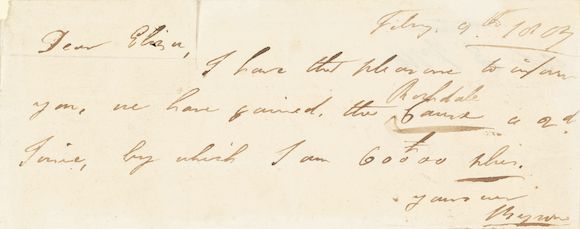 Feby. 9th. 1807
Dear Eliza,
I have the pleasure to inform
you, we have gained, the Rochdale Cause a 2d.
Time, by which I am £60000 plus.
yours ever
Byron